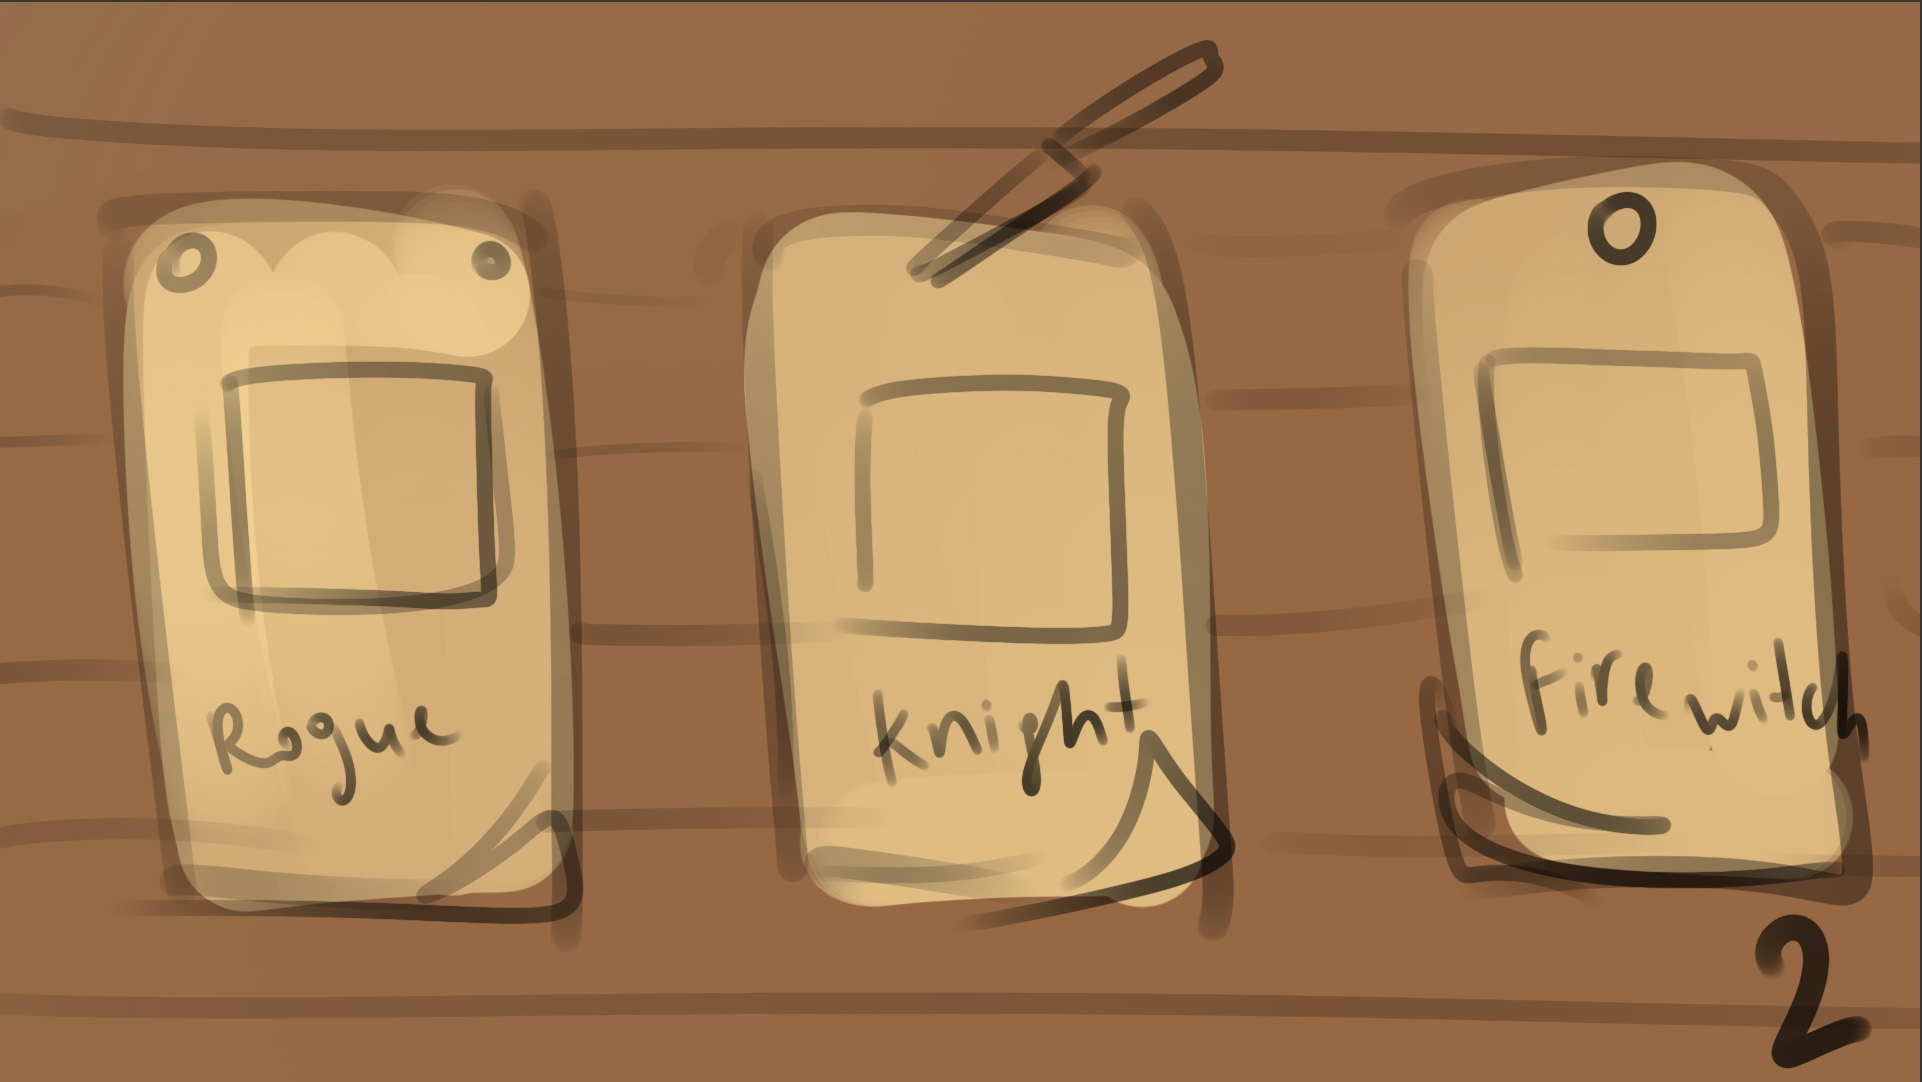 Rogue
Knight
fire witch
2